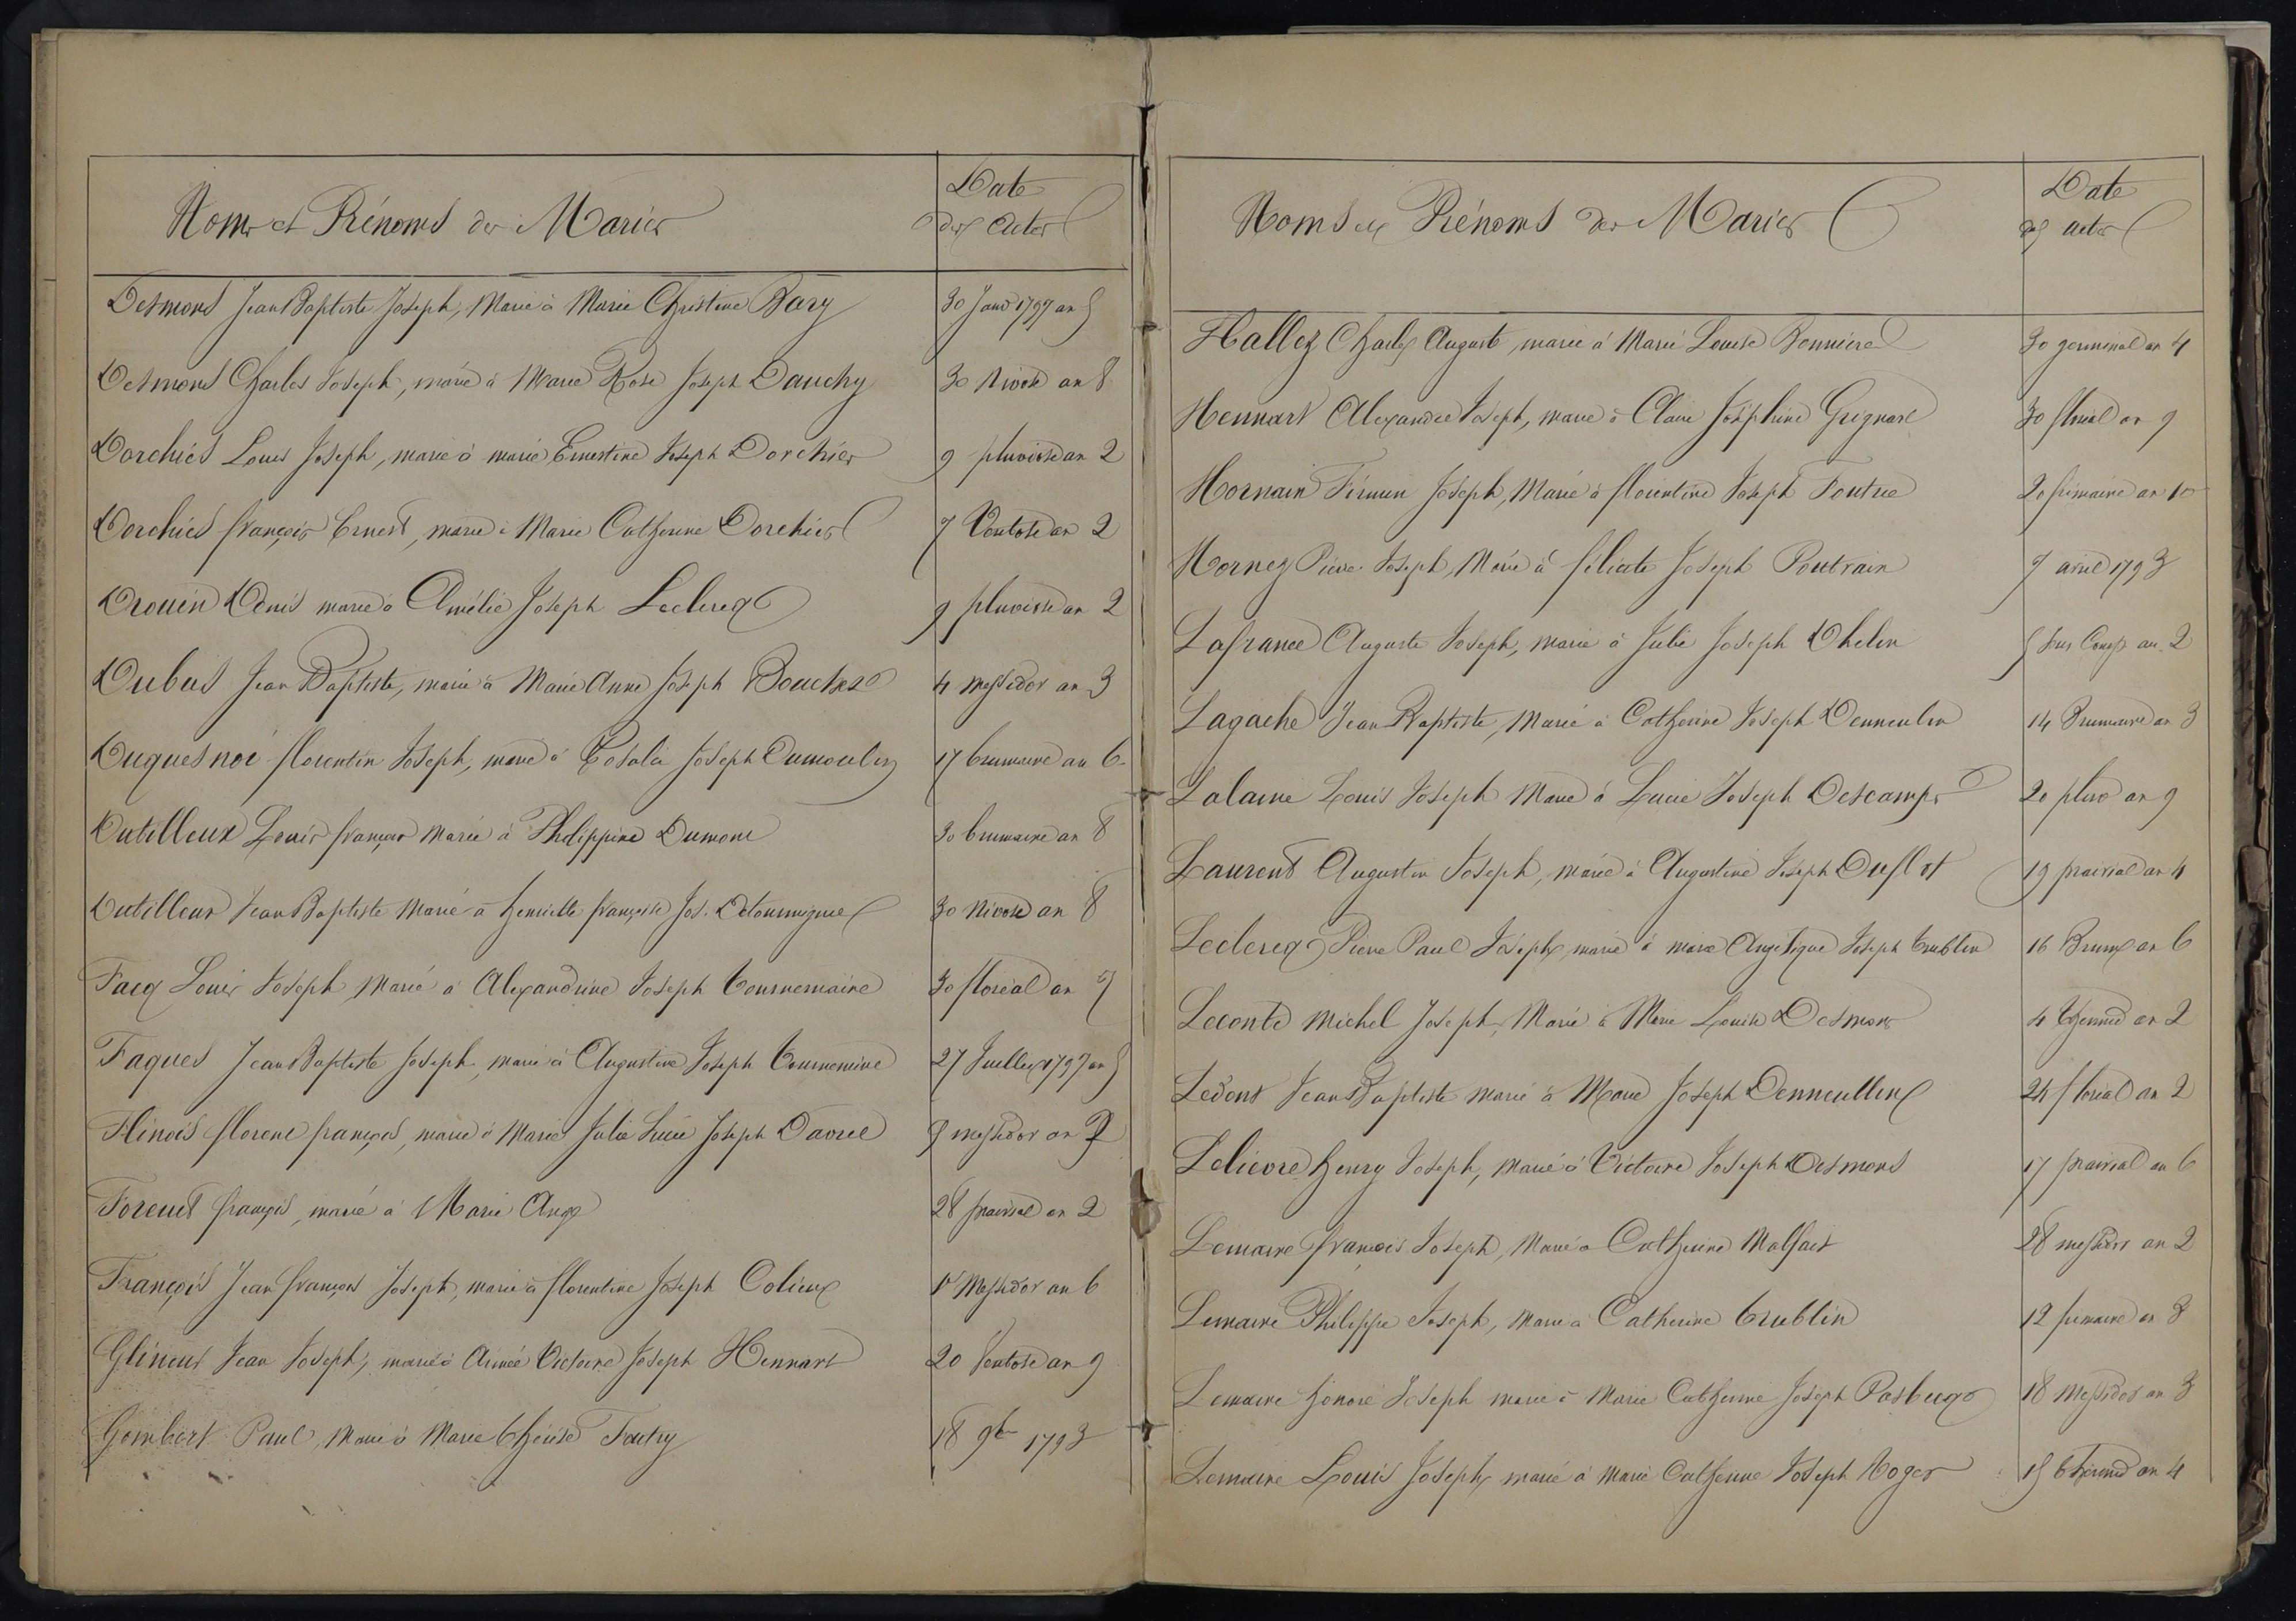 Noms et Prénoms des Mariés
Date
des Actes
Desmons Jean Baptiste Joseph, Marié à Marie Christine Bary 30 Janv 1797 an 5
Desmons Charles Joseph, marié à Marie Rose Joseph Dauchy 30 Nivose an 8
Dorchies Louis Joseph, marié à marie Ernestine Joseph Dorchies 9 pluviose an 2
Dorchies françois Ernest, marié à Marie Catherine Dorchies 7 Ventose an 2
Drouin Denis marié à Amélie Joseph Leclercq 9 pluviose an 2
Dubus Jean Baptiste, marié à Marie Anne Joseph 4 messidor an 3
Duquesnoi florentin Joseph, marié à Rosalie Joseph Dumoulin 17 brumaire an 6
Dutilleux Louis françois Marié à Philippine Dumont 30 brumaire an 8
Dutilleux Jean Baptiste Marié à henriette françoise Jos. Detournignies 30 Nivose an 8
Facq Louis Joseph Marié à Alexandrine Joseph Tournemaine 30 floréal an
Faques Jean Baptiste Joseph, marié à Augustine Joseph Tournemine 27 Juillet 1797 an 5
Flinois florent françois, marié à Marie Julie Lucie Joseph Davril 9 messidor an
françois, marié à Marie Ange 28 prairial an 2
François Jean françois Joseph, marié à florentine Joseph Colieux 1er Messidor an 6
Glineur Jean Joseph, marié à Aimée Victoire Joseph Hennart 20 Ventose an 9
Gombert Paul, Marié à Marie Thérèse Foutry 18 9bre 1793
Noms et Prénoms des Mariés
Date
des actes
Hallez Charles Auguste, marié à Marie Louise Bonnière 30 germinal an 4
Hennart Alexandre Joseph, marié à Claire Joséphine Grignard 30 floréal an 9
Hornain Firmin Joseph, Marié à florentine Joseph Foutrie 20 frimaire an 10
Hornez Pierre Joseph, Marié à félicité Joseph Poutrain 7 avril 1793
Lafrance Auguste Joseph, marié à Julie Joseph Dhelin 5 Jours Comp. an 2
Lagache Jean Baptiste, Marié à Catherine Joseph Dennoulin 14 Brumaire an 3
Lalaine Louis Joseph Marié à Lucie Joseph Descamps 20 pluv an 9
Laurent Augustin Joseph, marié à Augustine Joseph Duflot 19 prairial an 4
Leclercq Pierre Paul Joseph, marié à marie Angélique Joseph Trublin 16 Brum an 6
Leconte Michel Joseph, Marié à Marie Louise Desmons 4 Thermid an 2
Ledent Jean Baptiste marié à Marie Joseph Denneullin 24 floréal an 2
Lelievre henry Joseph, Marié à Victoire Joseph Desmons 17 prairial an 6
Lemaire françois Joseph, Marié à Catherine Malfait 28 messidor an 2
Lemaire Philippe Joseph, Marié à Catherine Trublin 12 frimaire an 3
Lemaire honoré Joseph marié à Marie Catherine Joseph 18 Messidor an 3
Lemaire Louis Joseph, marié à Marie Catherine Joseph Roger 15 thermid an 4